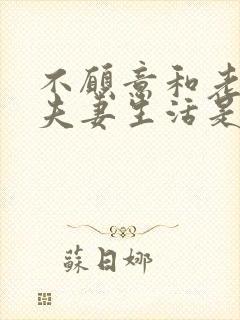 不愿意和老
夫妻生活是
蘇日娜